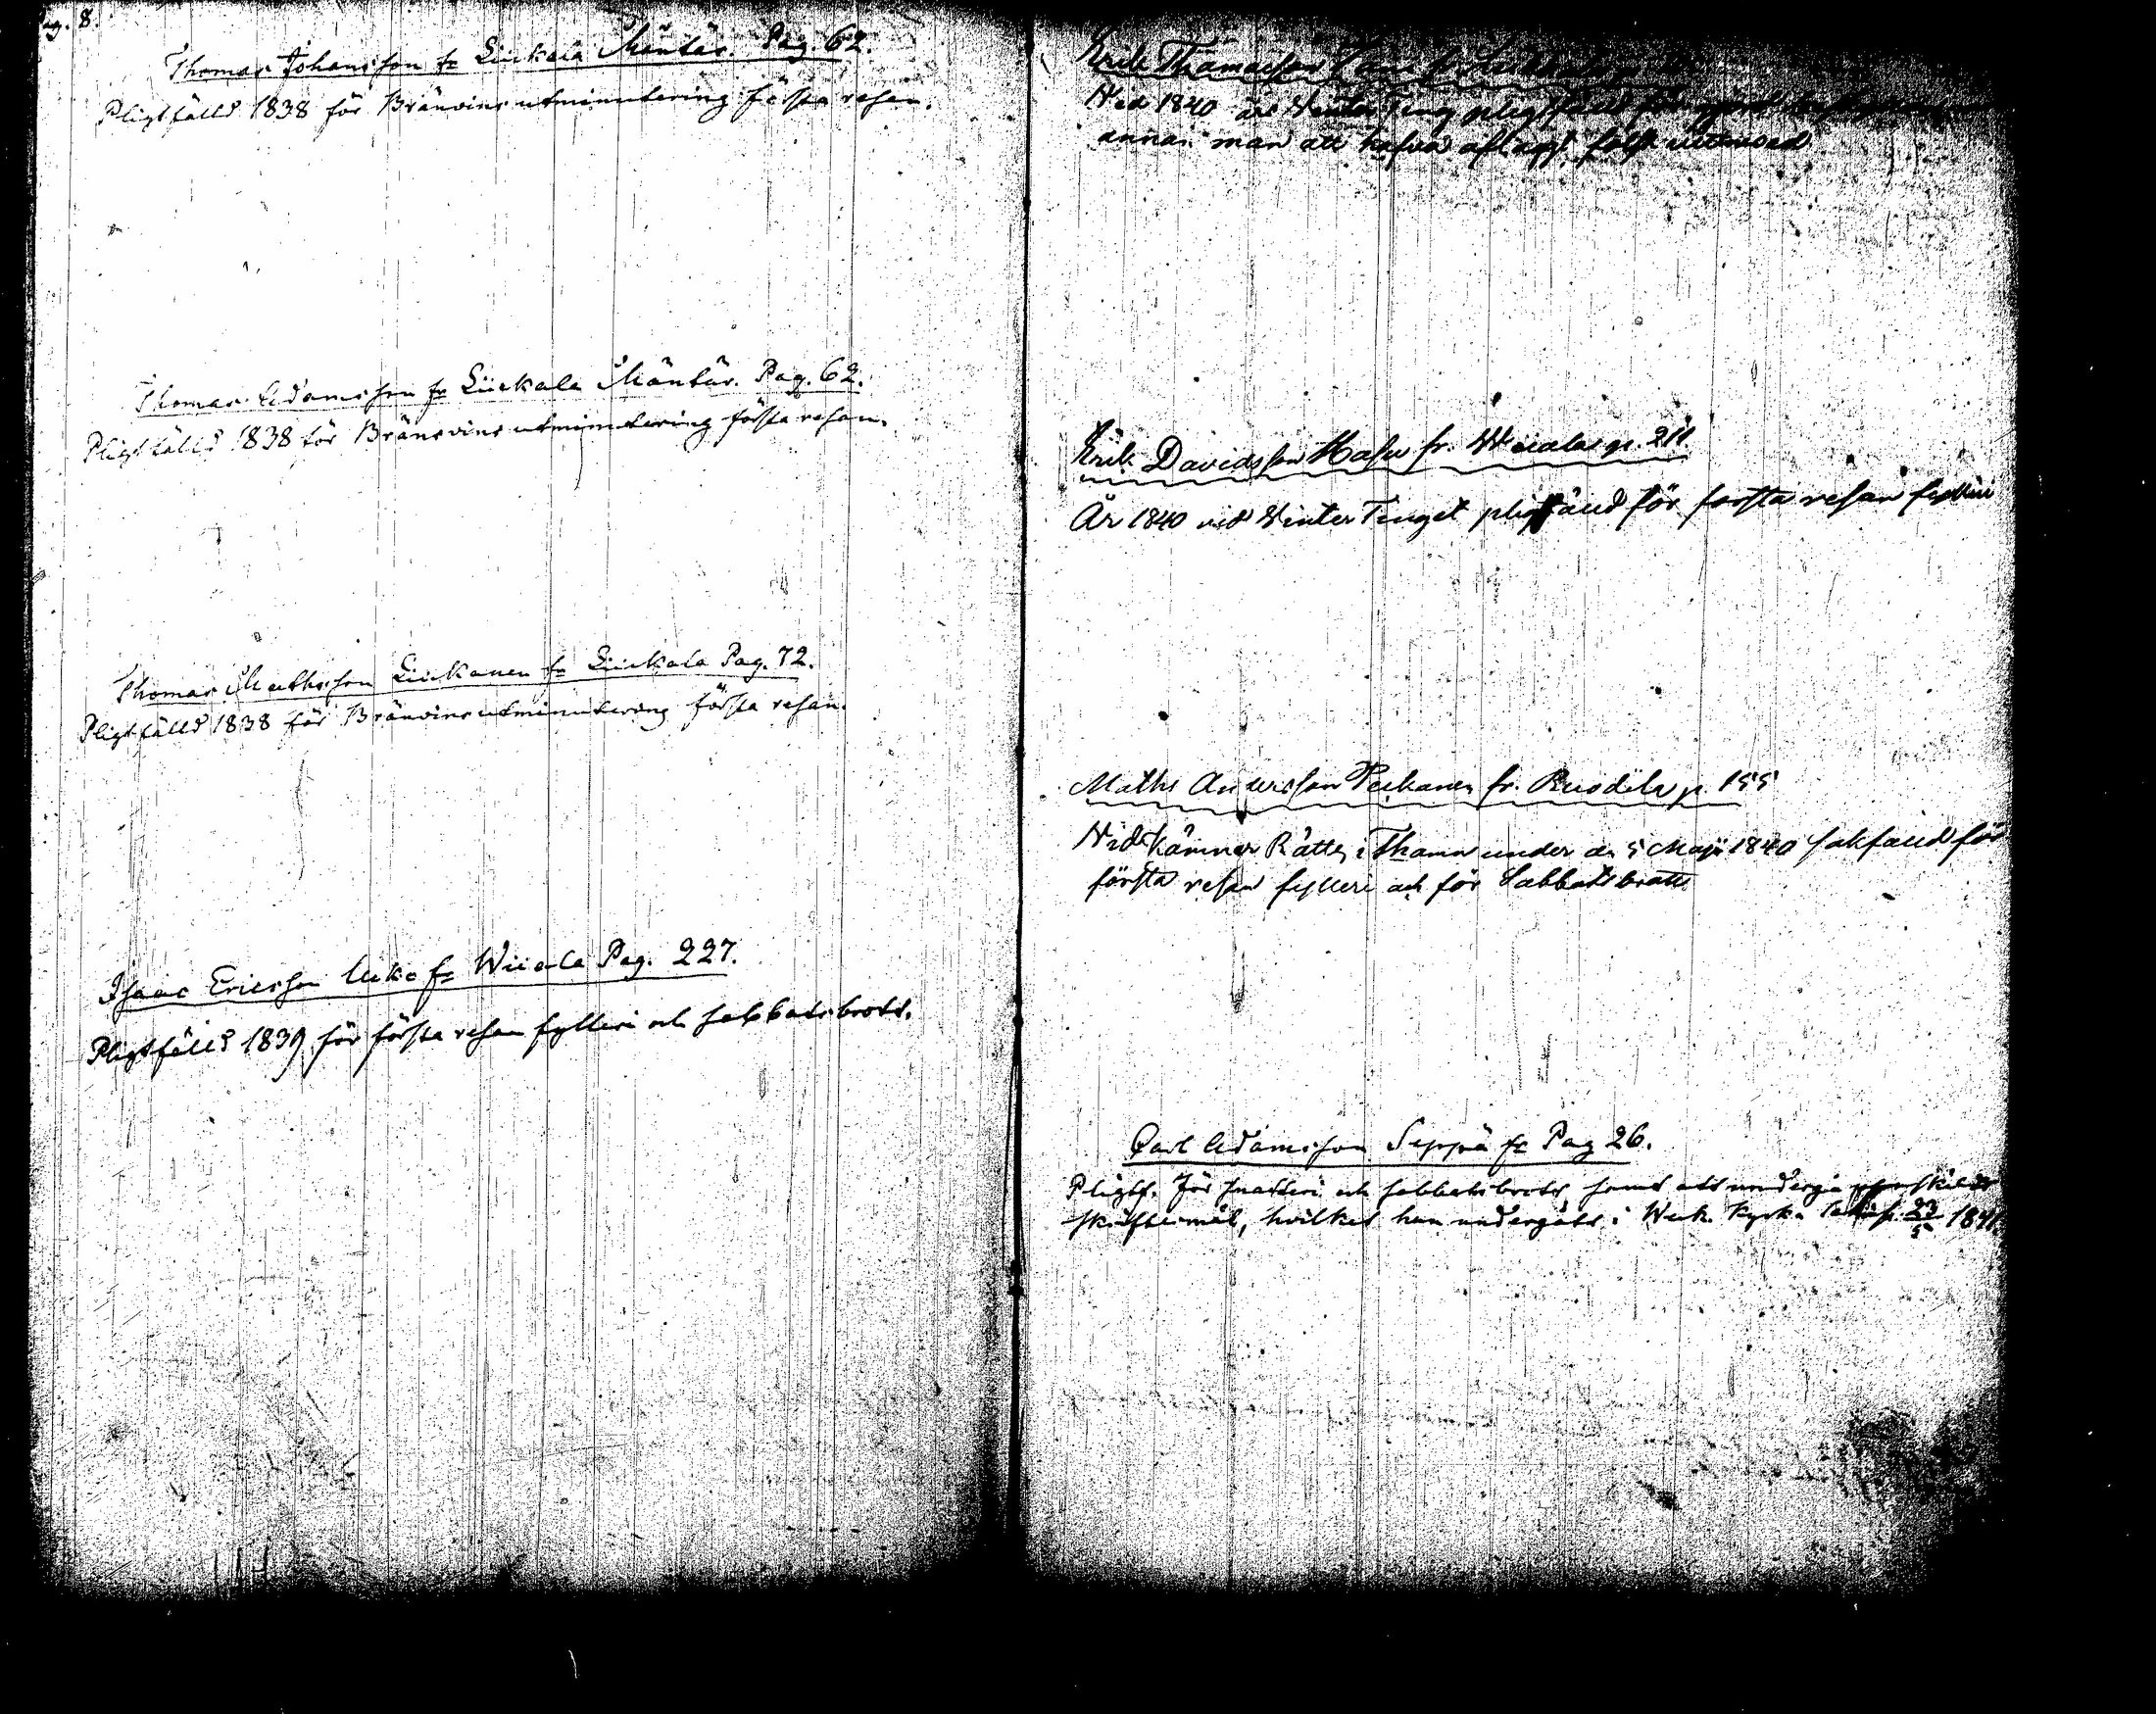 Pag. 8.
Thomas Johansson fr Liukala Mäntär. Pag. 62.
Pligtfälld 1838 för Bränvins utminutering första resan.
Thomas Adamsson fr Liukala Mäntär. Pag. 62.
Pligtfälld 1838 för Bränevins utminutering första resan.
Thomas Mathsson Liukanen fr Liukala Pag. 72.
Pligtfälld 1838 för Bränvins utminutering första resan.
Isaac Ericsson Uske fr Wiiala Pag. 227.
Pligtfälld 1839 för första resan fylleri och sabbatsbrott.
Erik Thomasson
Wid 1840 års Winter Ting pligtfälld för
annan man att hafva aflagt falsk vittnesed
Erik Davidsson fr. Wiiala p. 211
År 1840 vid Winter Tinget för första resan fylleri
Maths Andersson fr. Ruodila p. 155
Wid Kämner Rätten i Fhamn under den 5 Maji 1840 sakfälld för
första resan fylleri och för Sabbatsbrott
Carl Adamsson Seppä fr Pag 26.
Pligtf. för snatteri och sabbatsbrott samt att undergå
skriftermål, hvilket han undergått i Weck. Kyrka 23/5 1841